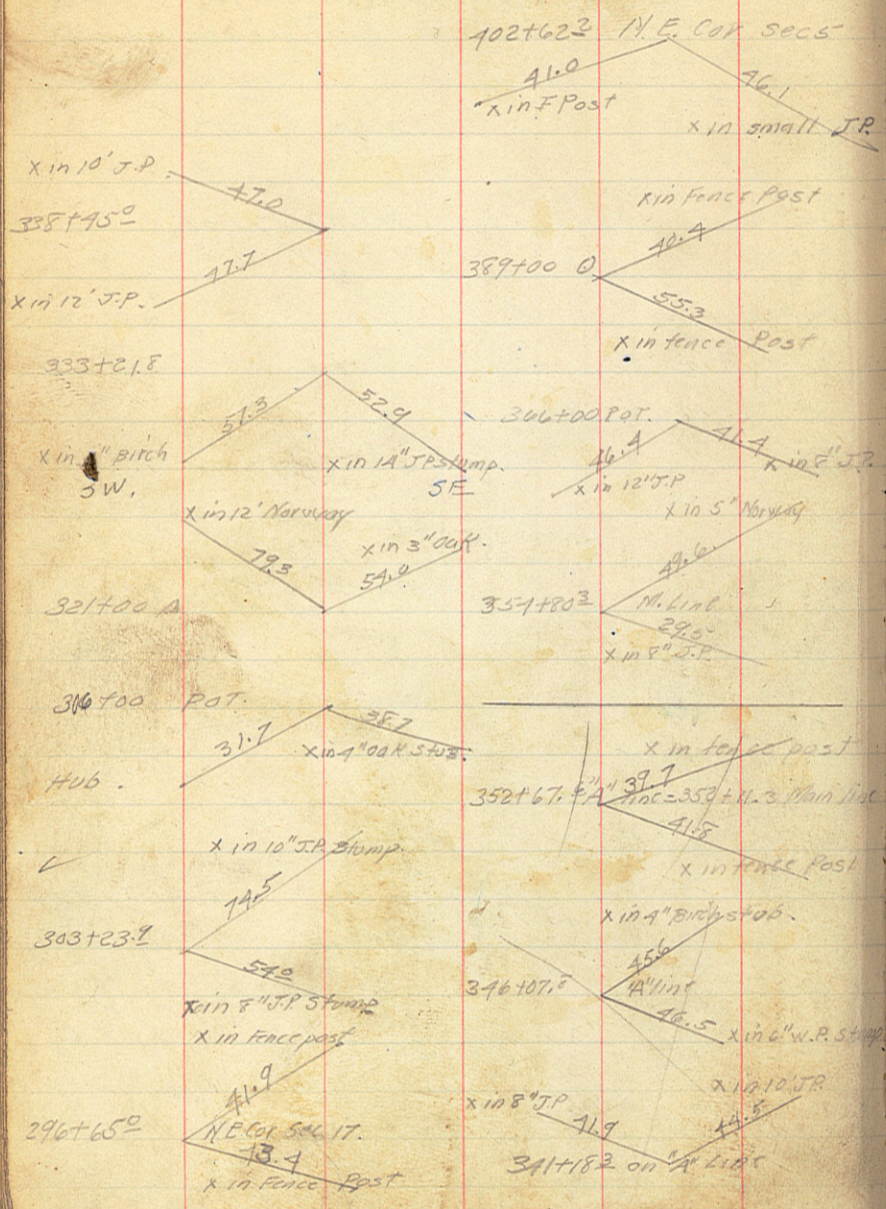 X in 10' J.P.
47.0
338+45⁰
47.7
X in 12' J.P.
333+21.8
57.3
52.9
X in " Birch
X in 14" J.P. stump.
SW.
SE
X in 12' Norway
X in 3" Oak.
79.3
54.0
321+00 △
306+00 POT.
31.7
38.7
X in 4" oak stub.
Hub.
X in 10" J.P. Stump.
74.5
303+23.9
54⁰
X in 8" J.P. Stump
X in Fence post
41.9
296+65⁰
NE Cor Sec 17.
43.4
X in Fence Post
402+62² N.E. Cor Sec 5
41.0
46.1
X in F Post
X in small J.P.
X in Fence Post
40.4
389+00 ⊙
55.3
X in fence Post
366+00 POT.
46.4
41.4
X in 8" J.P.
X in 12" J.P
X in 5" Norway
49.6
354+80³ M. Line
29.5
X in 8" J.P.
X in fence post
39.7
352+67. "A" line = 352+11.3 Main line
41.8
X in fence Post
X in 4" Birch stub.
45.6
346+07.⁸ "A" line
46.5
X in 6" W.P. Stump
X in 10' J.P.
X in 8" J.P
41.9
44.5
341+18³ on "A" Line